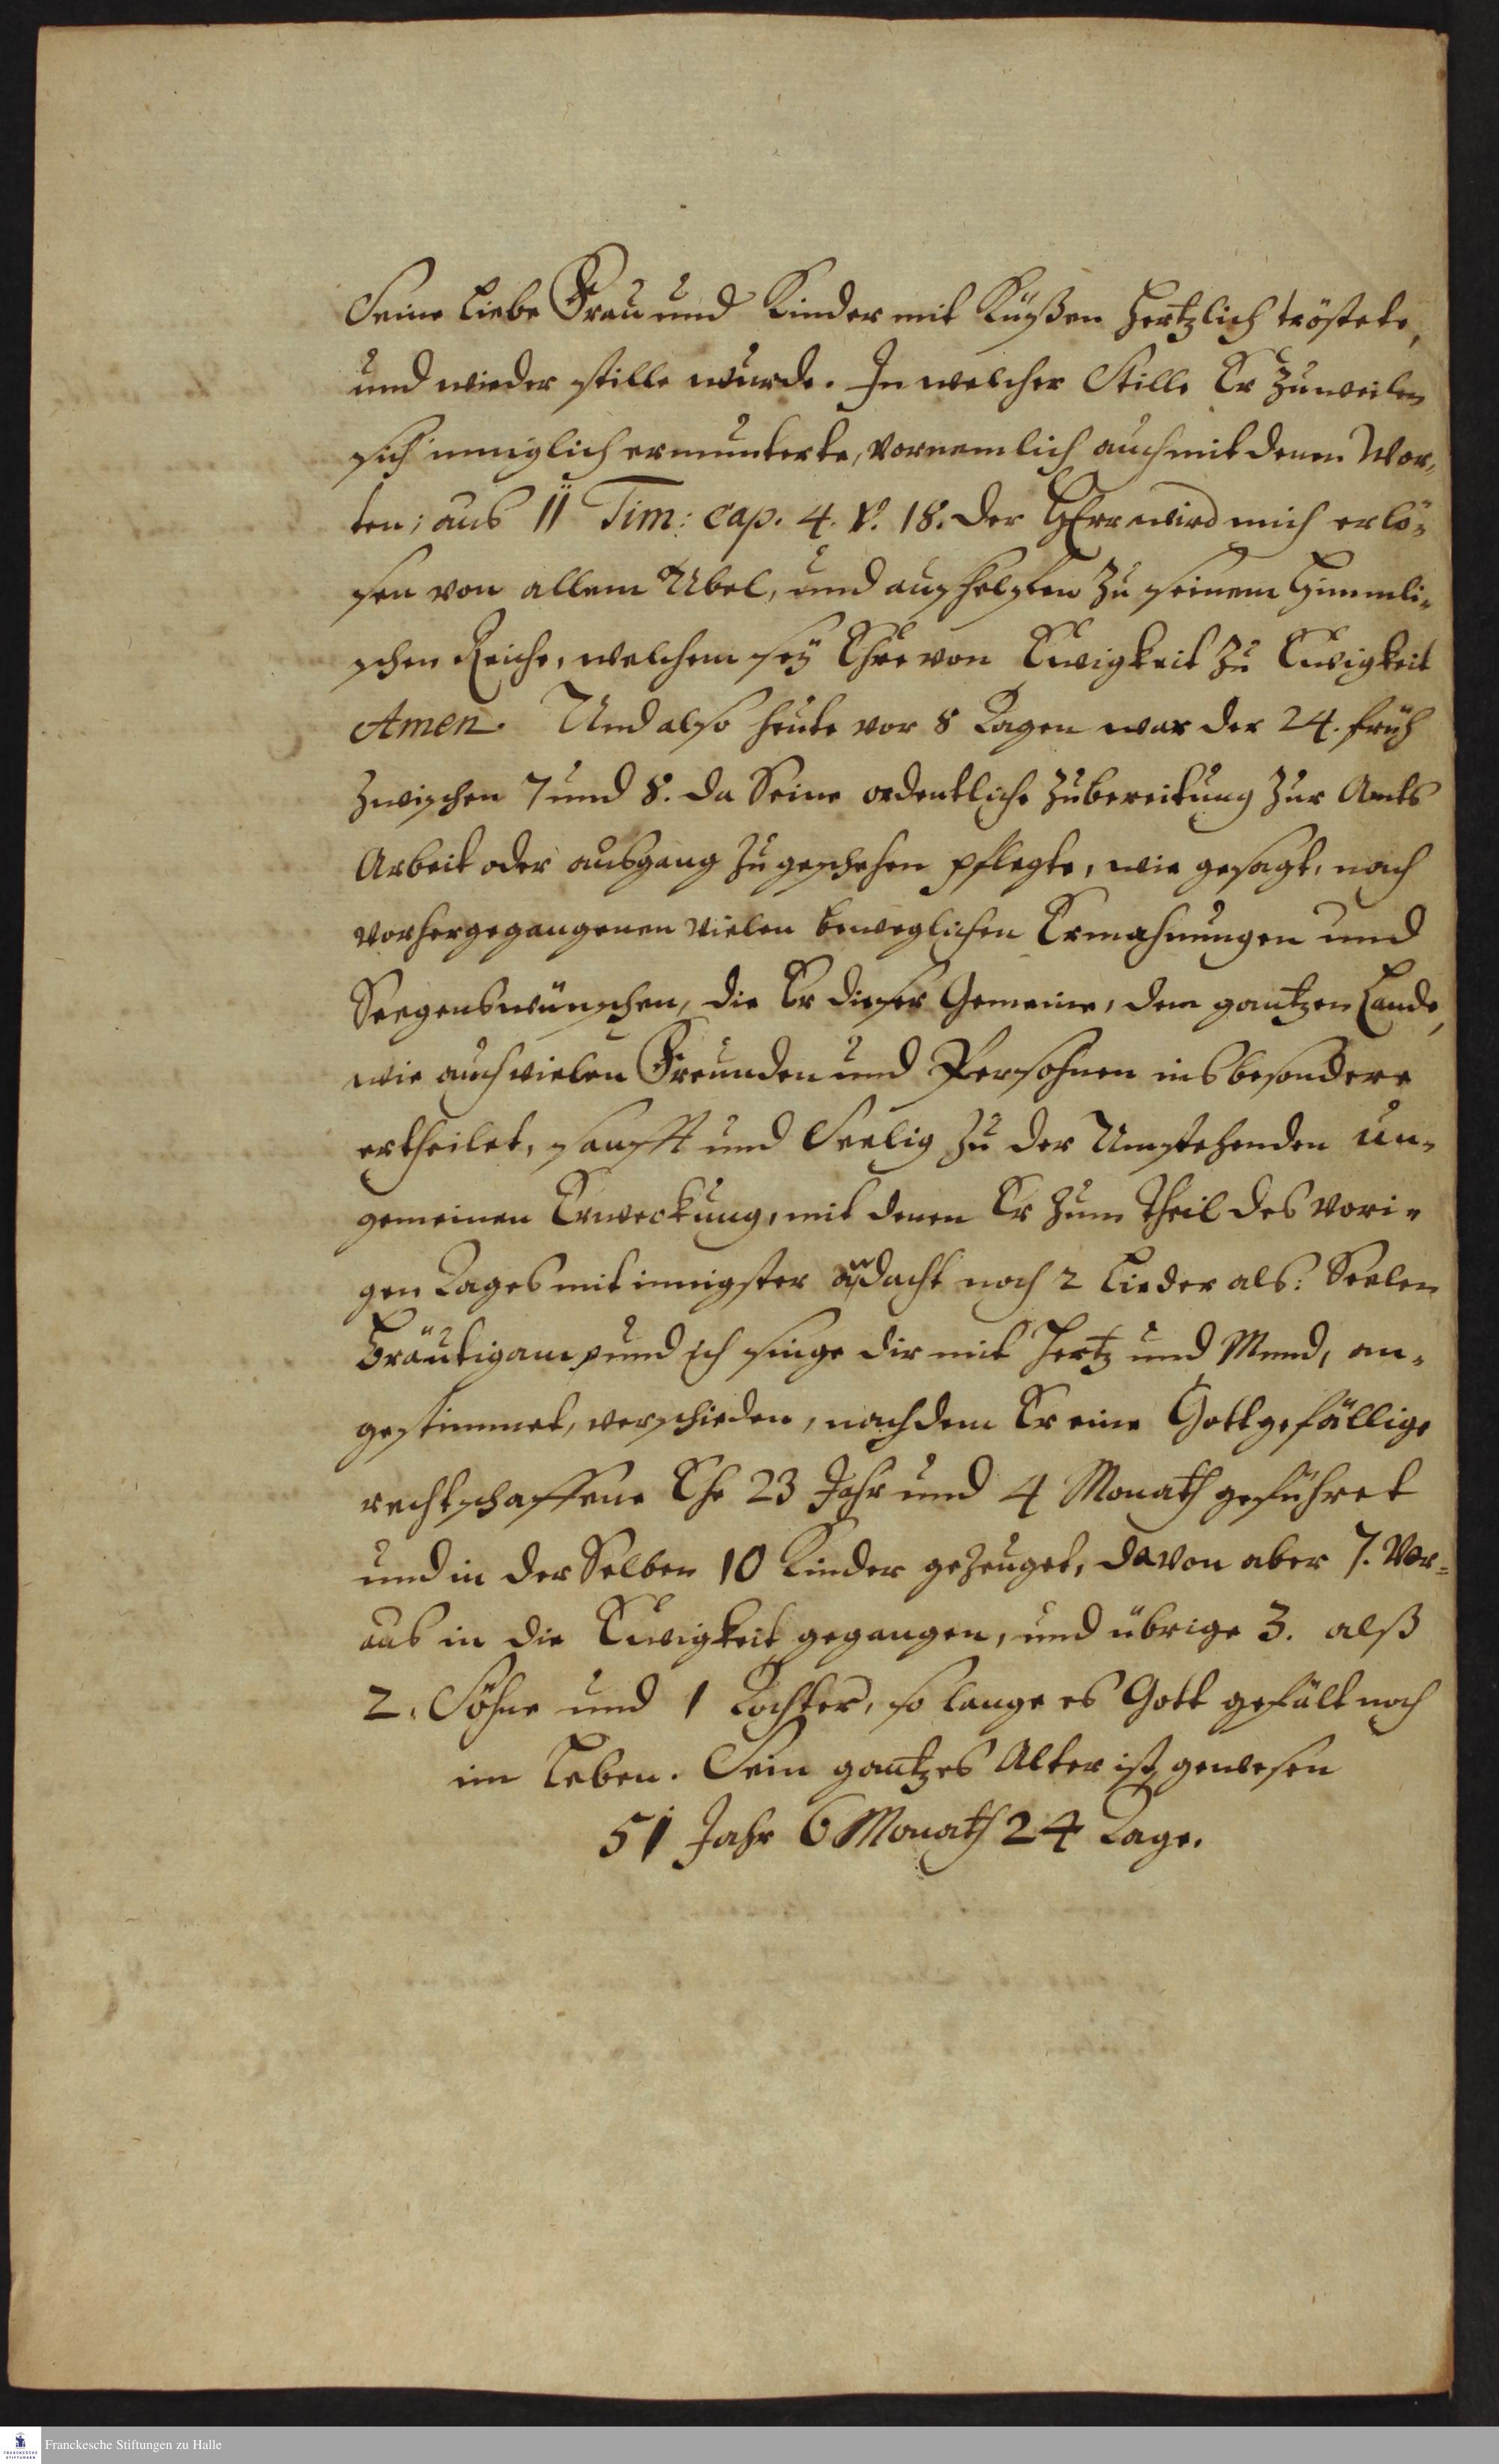 Seine liebe Frau und Kinder mit Küßen hertzlich tröstete,
und wieder stille wurde. In welcher Stille Er zuweilen
sich inniglich ermunterte, vornemlich auch mit denen Wor„
ten; aus II Tim: cap. 4. V. 18. Der HErr wird mich erlö„
sen von allem Ubel, und aushelffen zu seinem Himmli„
schen Reiche, welchem seÿ Ehre von Ewigkeit zu Ewigkeit
Amen. Und also heute vor 8 Tagen war der 24. früh
zwischen 7 und 8. da Seine ordentliche Zubereitung zur Amts
Arbeit oder ausgang zu geschehen pflegte, wie gesagt, nach
vorhergegangenen vielen beweglichen Ermahnungen und
Seegenswünschen, die Er dieser Gemeine, dem gantzen Lande,
wie auch vielen Freunden und Persohnen insbesondere
ertheilet, sanfft und Seelig zu der Umstehenden un„
gemeinen Erweckung, mit denen Er zum Theil des vori„
gen Tages mit innigster andacht noch 2 Lieder als: Seelen
Bräutigam p und ich singe dir mit Hertz und Mund, an„
gestimmet, verschieden, nachdem Er eine Gottgefällige
rechtschaffene Ehe 23 Jahr und 4 Monath geführet
und in der Selben 10 Kinder gezeuget, davon aber 7. Vor=
aus in die Ewigkeit gegangen, und übrige 3. alß
2. Söhne und 1 Tochter, so lange es Gott gefält noch
im Leben. Sein gantzes Alter ist gewesen
51 Jahr 6 Monath 24 Tage.
FRANCKESCHE STIFTUNGEN
Franckesche Stiftungen zu Halle